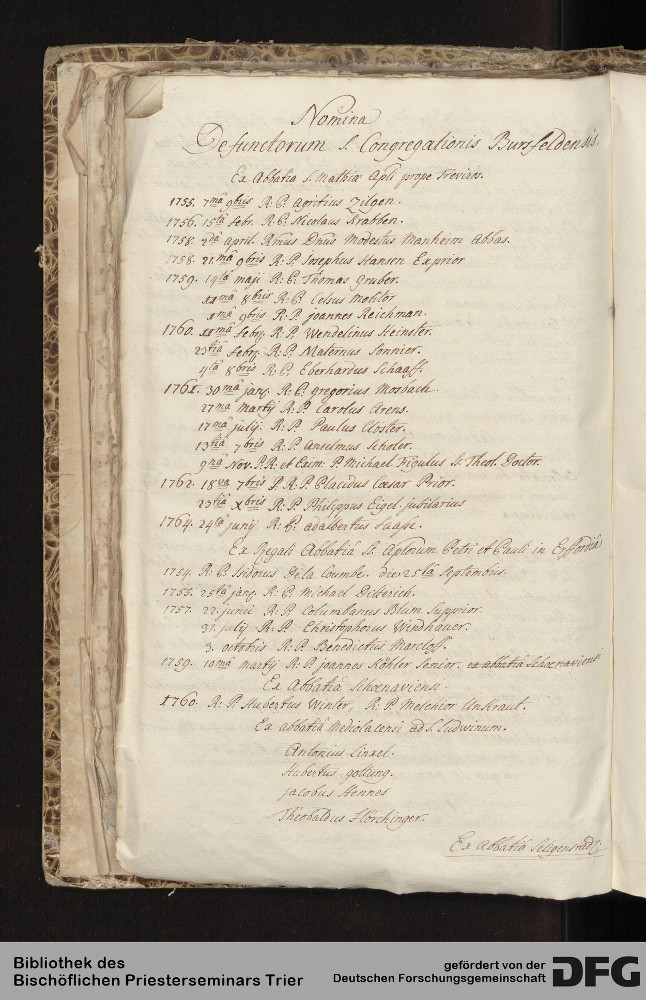 Nomina
Defunctorum S. Congregationis Bursfeldensis.
Ex Abbatia S. Mathiæ Apli prope Treviros.
1755. 7mâ 9bris R. P. Agritius Zilgen.
1756. 15tâ febr. R. P. Nicolaus Krabben.
1758. 2dâ April. Rmus Dnus Modestus Manheim Abbas.
1758. 21mâ 9bris R. P. Josephus Hansen Exprior
1759. 14tâ maji R. P. Thomas Gruber.
11mâ 8bris R. P. Celsus Molitor
1mâ 9bris R. P. Joannes Reichman.
1760. 11mâ febrȷ. R. P. Wendelinus Heinster.
23tiâ febrȷ. R. P. Maternus Sonnier.
4tâ 8bris R. P. Eberhardus Schaaff.
1761. 30mâ janȷ. R. P. gregorius Mosbach.
27mâ Martij R. P. Carolus Arens.
17mâ julij. R. P. Paulus Obster.
13tiâ 7bris R. P. Anselmus Scholer.
9nâ Nov. P. R. et Exim. P. Michael Figulus Ss. Theol. Doctor.
1762. 18va 7bris P. R. P. Placidus Cæsar Prior.
23tiâ Xbris R. P. Philippus Eigel jubilarius
1764. 24tâ junij R. P. Adalbertus Haase.
Ex Regali Abbatiâ Ss. Aplorum Petri et Pauli in Erffordiâ
1754. R. P. Isidorus Dela Coumbe. die 25tâ Septembris.
1755. 25tâ janȷ. R. P. Michael Dieterich.
1757. 22. junii R. P. Columbanus Blum Supprior.
31. julij R. P. Christophorus Windhauer.
3. octobris R. P. Benedictus Marcloff.
1759. 10mâ martij R. P. joannes Köhler Senior. ex abbatiâ Schœnaviensi
Ex Abbatiâ Schœnaviensi.
1760. R. P. Hubertus Winter, R. P. Melchior Unkraut.
Ex abbatiâ Mediolacensi ad S. Ludwinum.
Antonius Linxel.
Hubertus gottung.
jacobus Hennes
Theobaldus Flörchinger.
Ex Abbatiâ Seligenstad:
Bibliothek des
Bischöflichen Priesterseminars Trier
gefördert von der
Deutschen Forschungsgemeinschaft
DFG